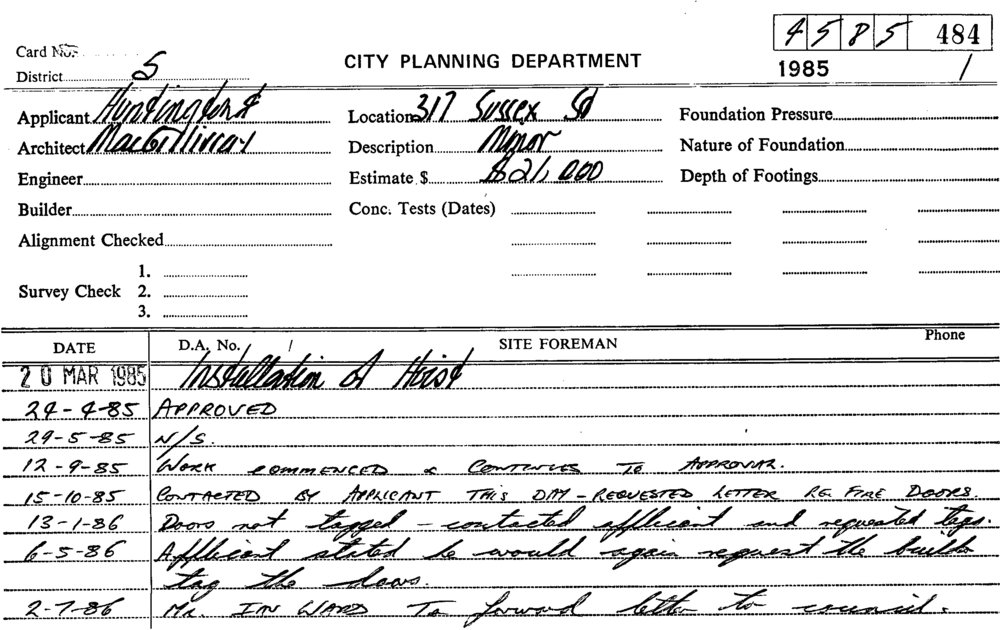 4 5 8 5 484
Card No.
CITY PLANNING DEPARTMENT
1985 /
District 5
Applicant Huntington & Location 317 Sussex St Foundation Pressure
Architect MacGillivray Description Minor Nature of Foundation
Engineer Estimate $ $21,000 Depth of Footings
Builder Conc. Tests (Dates)
Alignment Checked
1.
Survey Check 2.
3.
DATE D.A. No. / / SITE FOREMAN Phone
20 MAR 1985 Installation of Hoist
24-4-85 APPROVED
29-5-85 N/S.
12-9-85 WORK COMMENCED & CONTINUES TO APPROVAL.
15-10-85 CONTACTED BY APPLICANT THIS DAY - REQUESTED LETTER RE. FIRE DOORS.
13-1-86 Doors not tagged - contacted applicant and requested tags.
6-5-86 Applicant stated he would again request the builder
tag the doors.
2-7-86 Mr. IN WARD To forward letter to council.